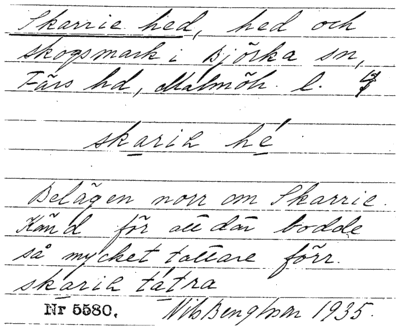 Skarrie hed, hed och
skogsmark i Björka sn,
Färs hd, Malmöh. l.
skariə hé
Belägen norr om Skarrie.
Känd för att där bodde
så mycket tattare förr.
skariə tátra
Nr 5580. Nils Bengtsson 1935.